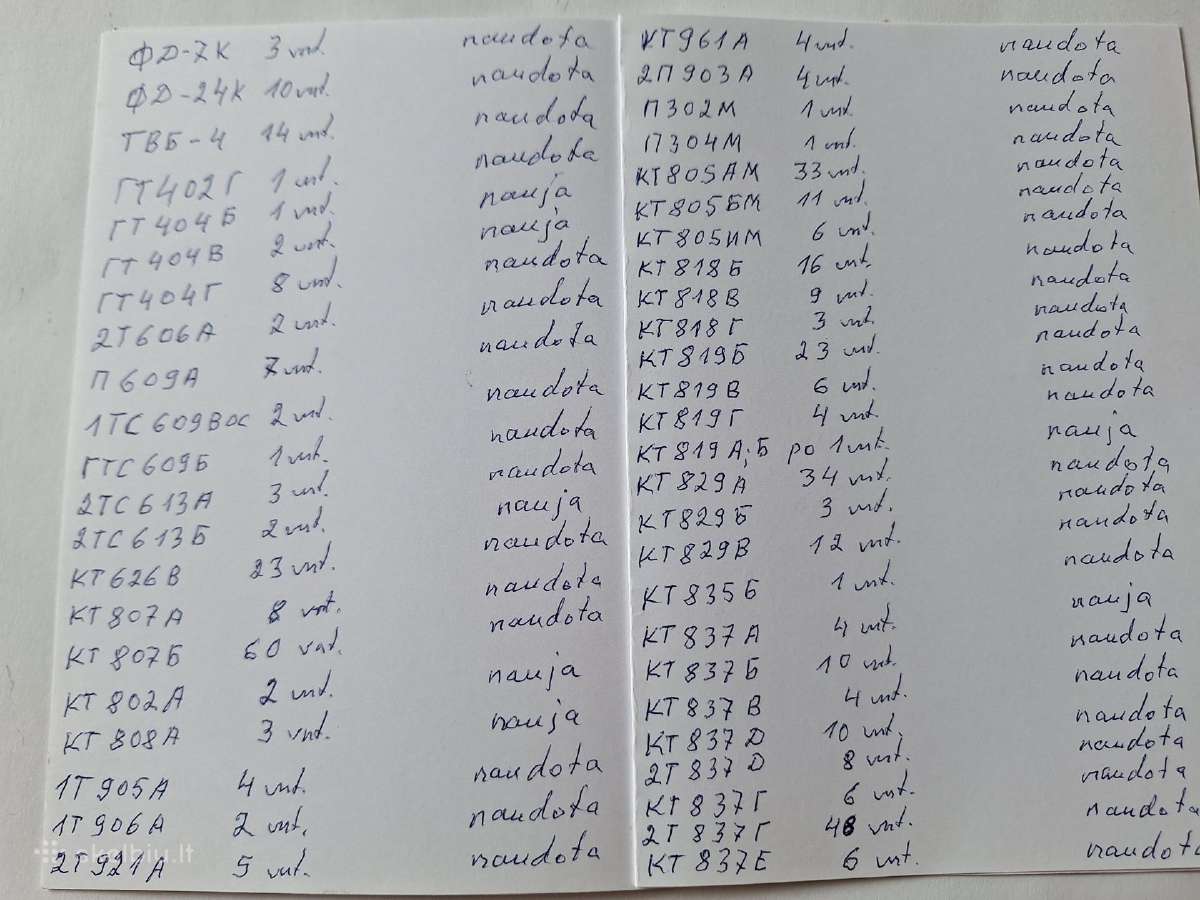 ФД-7К 3 vnt. naudota
ФД-24К 10 vnt. naudota
ТВБ-4 14 vnt. naudota
ГТ402Г 1 vnt. naudota
ГТ404Б 1 vnt. nauja
ГТ404В 2 vnt. nauja
ГТ404Г 8 vnt. naudota
2Т606А 2 vnt. naudota
П609А 7 vnt. naudota
1ТС609Вос 2 vnt. naudota
ГТС609Б 1 vnt. naudota
2ТС613А 3 vnt. naudota
2ТС613Б 2 vnt. nauja
КТ626В 23 vnt. naudota
КТ807А 8 vnt. naudota
КТ807Б 60 vnt. naudota
КТ802А 2 vnt. nauja
КТ808А 3 vnt. nauja
1Т905А 4 vnt. naudota
1Т906А 2 vnt. naudota
2Т921А 5 vnt. naudota
КТ961А 4 vnt. naudota
2П903А 4 vnt. naudota
П302М 1 vnt. naudota
П304М 1 vnt. naudota
КТ805АМ 33 vnt. naudota
КТ805БМ 11 vnt. naudota
КТ805ИМ 6 vnt. naudota
КТ818Б 16 vnt. naudota
КТ818В 9 vnt. naudota
КТ818Г 3 vnt. naudota
КТ819Б 23 vnt. naudota
КТ819В 6 vnt. naudota
КТ819Г 4 vnt. naudota
КТ819А;Б po 1 vnt. nauja
КТ829А 34 vnt. naudota
КТ829Б 3 vnt. naudota
КТ829В 12 vnt. naudota
КТ835Б 1 vnt. naudota
КТ837А 4 vnt. nauja
КТ837Б 10 vnt. naudota
КТ837В 4 vnt. naudota
КТ837D 10 vnt. naudota
2Т837D 8 vnt. naudota
КТ837Г 6 vnt. naudota
2Т837Г 48 vnt. naudota
КТ837Е 6 vnt. naudota
skelbiu.lt